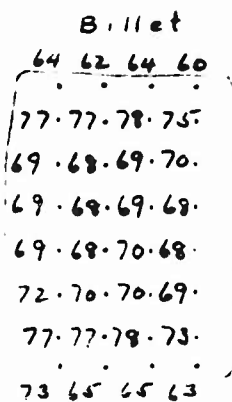 Billet
64 62 64 60
. . . .
77. 77. 78. 75.
69. 68. 69. 70.
69. 68. 69. 68.
69. 68. 70. 68.
72. 70. 70. 69.
77. 77. 78. 73.
. . . .
73 65 65 63